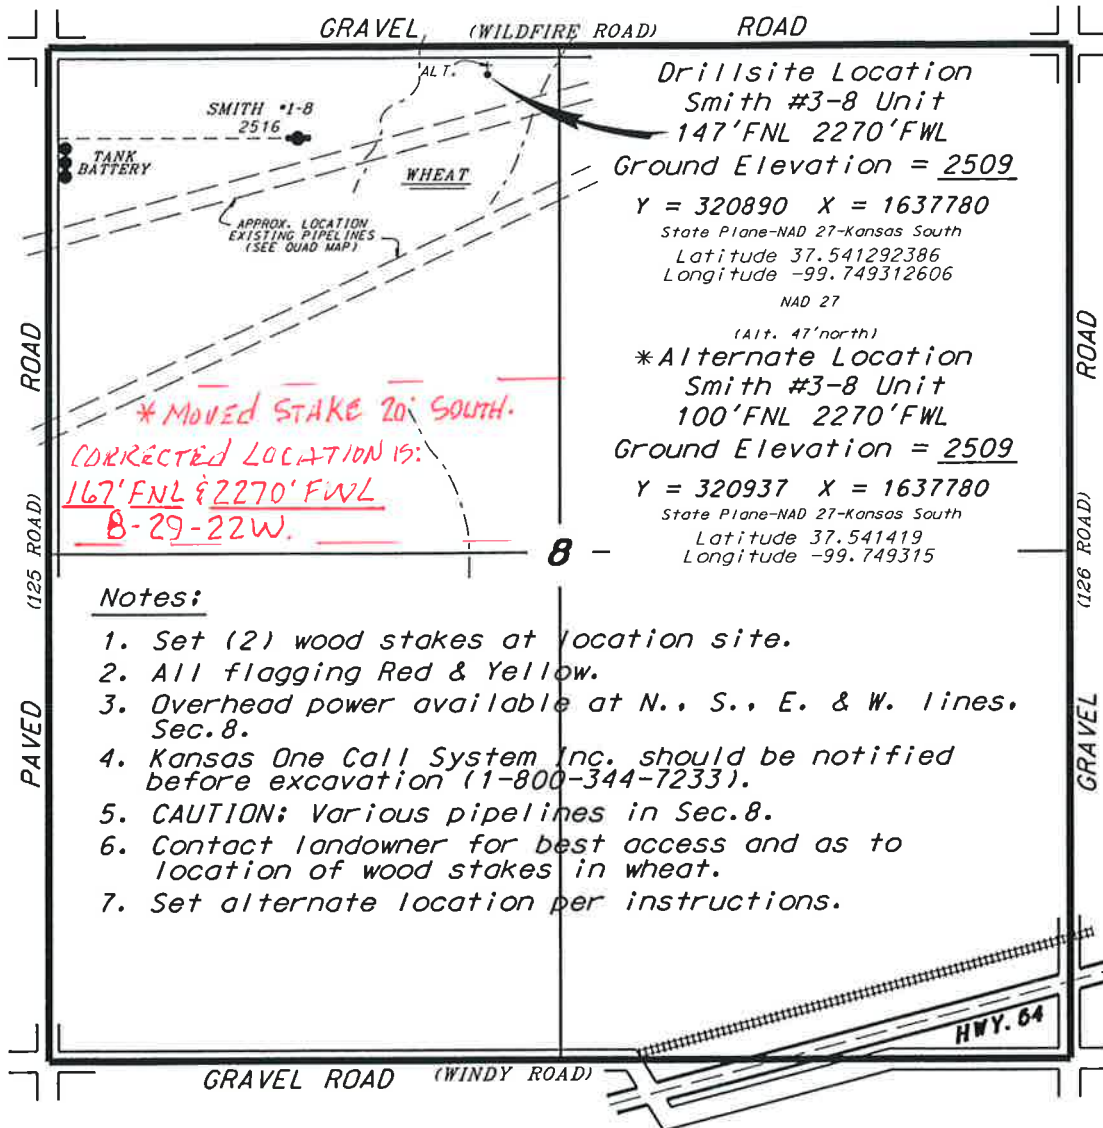 GRAVEL (WILDFIRE ROAD) ROAD
ALT.
SMITH #1-8
2516
TANK
BATTERY
WHEAT
APPROX. LOCATION
EXISTING PIPELINES
(SEE QUAD MAP)
Drillsite Location
Smith #3-8 Unit
147'FNL 2270'FWL
Ground Elevation = 2509
Y = 320890 X = 1637780
State Plane-NAD 27-Kansas South
Latitude 37.541292386
Longitude -99.749312606
NAD 27
(Alt. 47'north)
*Alternate Location
Smith #3-8 Unit
100'FNL 2270'FWL
Ground Elevation = 2509
Y = 320937 X = 1637780
State Plane-NAD 27-Kansas South
Latitude 37.541419
Longitude -99.749315
* MOVED STAKE 20' SOUTH.
CORRECTED LOCATION IS:
167' FNL & 2270' FWL
8-29-22W.
8
PAVED (125 ROAD) ROAD
GRAVEL (126 ROAD) ROAD
Notes:
1. Set (2) wood stakes at location site.
2. All flagging Red & Yellow.
3. Overhead power available at N., S., E. & W. lines,
Sec.8.
4. Kansas One Call System Inc. should be notified
before excavation (1-800-344-7233).
5. CAUTION: Various pipelines in Sec.8.
6. Contact landowner for best access and as to
location of wood stakes in wheat.
7. Set alternate location per instructions.
HWY. 54
GRAVEL ROAD (WINDY ROAD)